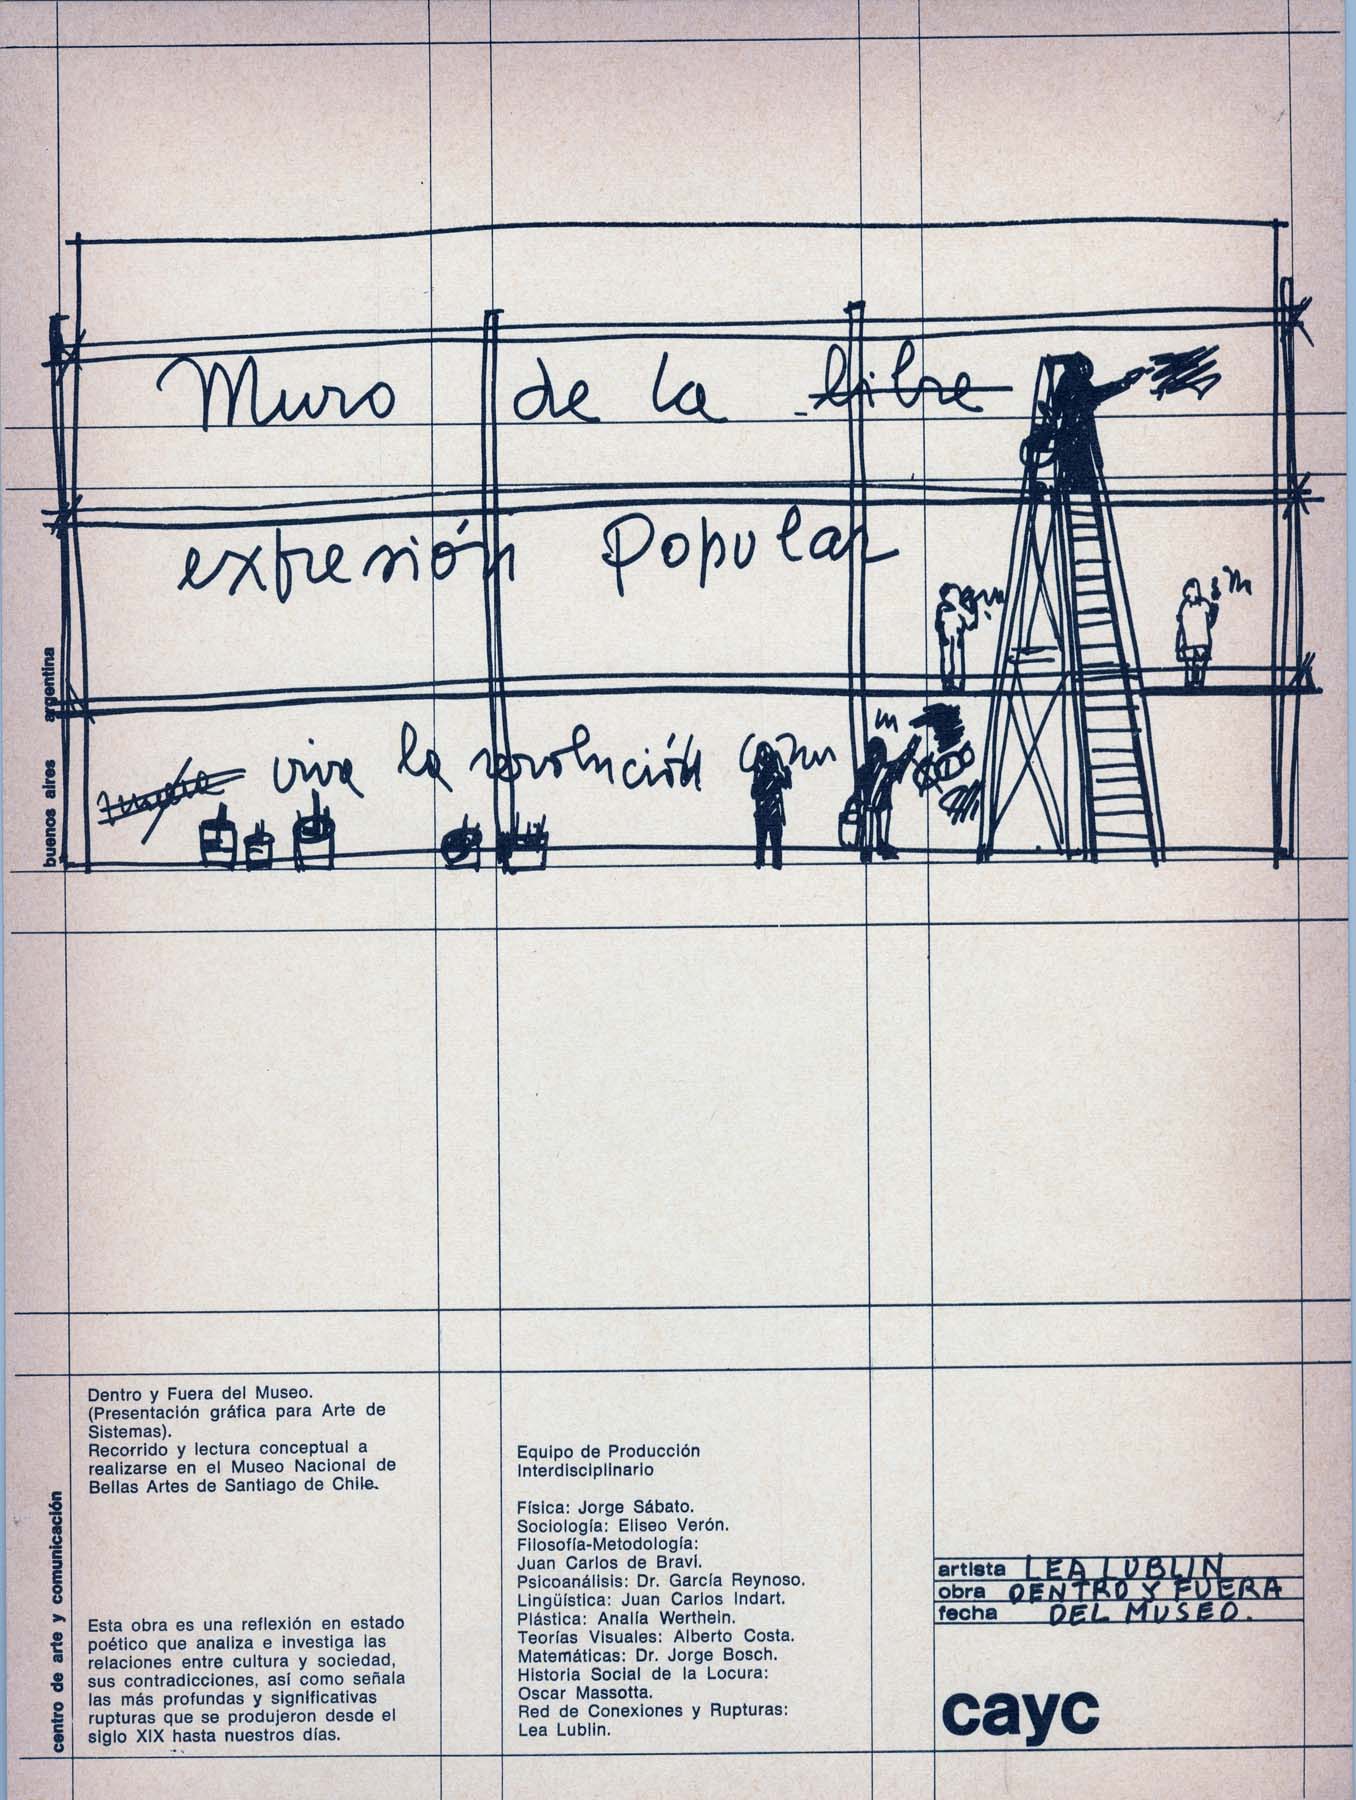 Muro de la libre
expresión Popular
viva la revolución
buenos aires argentina
Dentro y Fuera del Museo.
(Presentación gráfica para Arte de
Sistemas).
Recorrido y lectura conceptual a
realizarse en el Museo Nacional de
Bellas Artes de Santiago de Chile.
Esta obra es una reflexión en estado
poético que analiza e investiga las
relaciones entre cultura y sociedad,
sus contradicciones, así como señala
las más profundas y significativas
rupturas que se produjeron desde el
siglo XIX hasta nuestros días.
centro de arte y comunicación
Equipo de Producción
Interdisciplinario
Física: Jorge Sábato.
Sociología: Eliseo Verón.
Filosofía-Metodología:
Juan Carlos de Bravi.
Psicoanálisis: Dr. García Reynoso.
Lingüística: Juan Carlos Indart.
Plástica: Analía Werthein.
Teorías Visuales: Alberto Costa.
Matemáticas: Dr. Jorge Bosch.
Historia Social de la Locura:
Oscar Massotta.
Red de Conexiones y Rupturas:
Lea Lublin.
artista LEA LUBLIN
obra DENTRO Y FUERA
fecha DEL MUSEO.
cayc